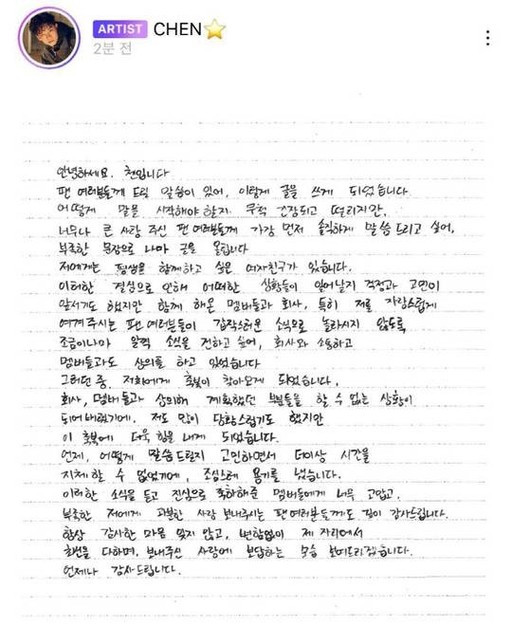 ARTIST CHEN⭐
2분 전
안녕하세요. 첸입니다
팬 여러분들께 드릴 말씀이 있어, 이렇게 글을 쓰게 되었습니다.
어떻게 말을 시작해야 할지 무척 긴장되고 떨리지만,
너무나 큰 사랑 주신 팬 여러분들께 가장 먼저 솔직하게 말씀드리고 싶어,
부족한 문장으로 나마 글을 올립니다
저에게는 평생을 함께하고 싶은 여자친구가 있습니다.
이러한 결심으로 인해 어떠한 상황들이 일어날지 걱정과 고민이
앞서기도 했지만 함께 해온 멤버들과 회사, 특히 저를 자랑스럽게
여겨주시는 팬 여러분들이 갑작스러운 소식으로 놀라시지 않도록
조금이나마 일찍 소식을 전하고 싶어, 회사와 소통하고
멤버들과도 상의를 하고 있었습니다
그러던 중, 저희에게 축복이 찾아오게 되었습니다.
회사, 멤버들과 상의해 계획했던 부분들을 할 수 없는 상황이
되어버렸기에, 저도 많이 당황스럽기도 했지만
이 축복에 더욱 힘을 내게 되었습니다.
언제, 어떻게 말씀 드릴지 고민하면서 더이상 시간을
지체할 수 없었기에, 조심스레 용기를 냈습니다.
이러한 소식을 듣고 진심으로 축하해준 멤버들에게 너무 고맙고,
부족한 저에게 과분한 사랑 보내주시는 팬 여러분들께도 깊이 감사드립니다.
항상 감사한 마음 잊지 않고, 변함없이 제 자리에서
최선을 다하며, 보내주신 사랑에 보답하는 모습 보여드리겠습니다.
언제나 감사드립니다.